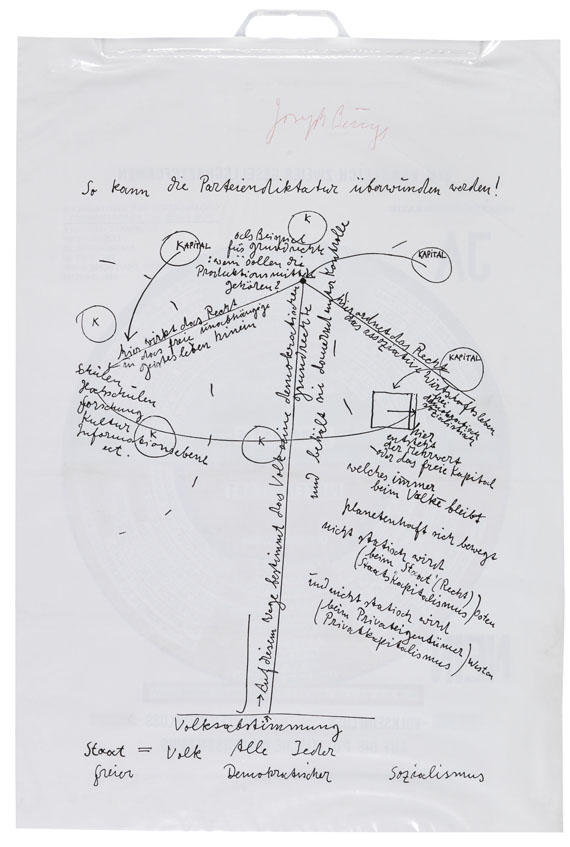 Joseph Beuys
So kann die Parteiendiktatur überwunden werden!
K
KAPITAL
als Beispiel
für Grundrechte
: wem sollen die
Produktionsmittel
gehören?
KAPITAL
K
hier wirkt das Recht
in das freie unabhängige
Geistesleben hinein
hier ordnet das Recht
das assoziative Wirtschaftsleben
KAPITAL
Schulen
Hochschulen
Forschung
Kultur
Informationsebene
ect.
K
K
hier
entsteht
der Mehrwert
oder das freie Kapital
welches immer
beim Volke bleibt
planetenhaft sich bewegt
nicht statisch wird
(beim Staat (Recht))
(Staatskapitalismus) Osten
und nicht statisch wird
(beim Privateigentümer)
(Privatkapitalismus) Westen
→ Auf diesem Wege bestimmt das Volk seine demokratischen
Grundrechte
und behält sie dauernd unter Kontrolle
Volksabstimmung
Staat = Volk Alle Jeder
freier Demokratischer Sozialismus